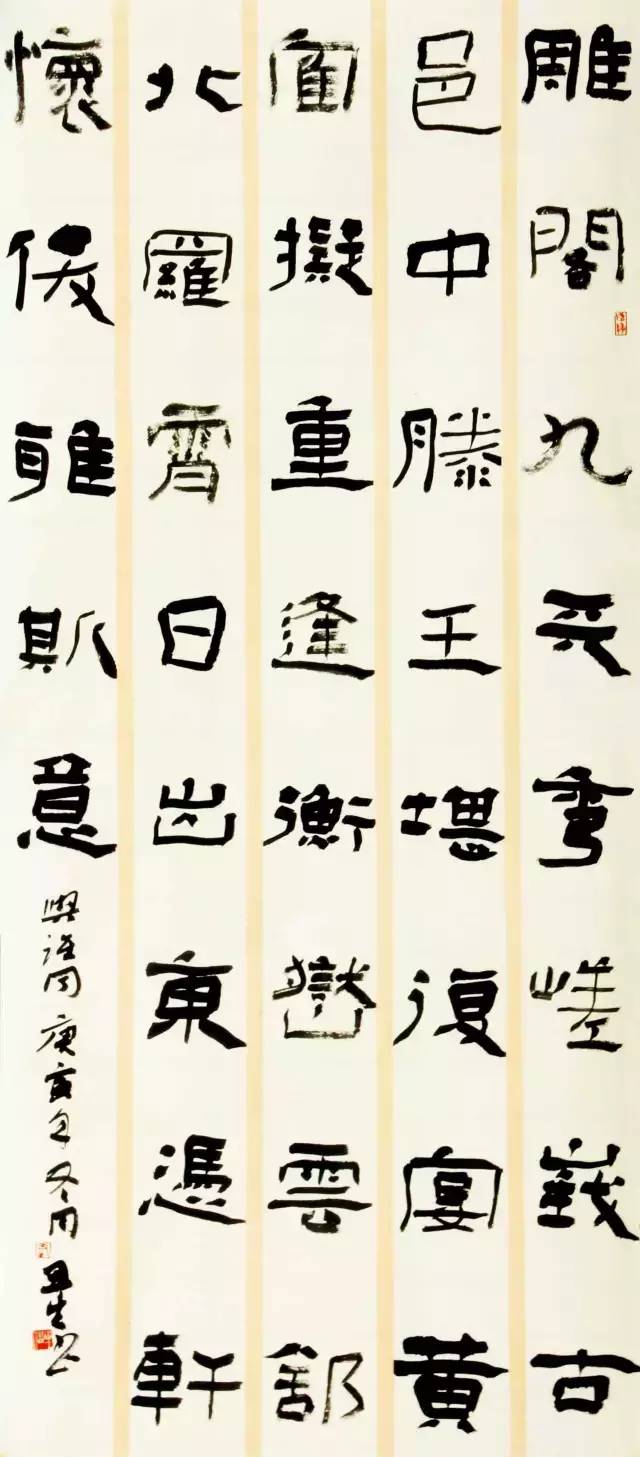 雕閣九天嵯峩古
邑中滕王堪復宴黃
寉擬重逢衡嶽雲舒
北羅霄日出東憑軒
懷俊雅斯意
與誰同庚寅年冬月書